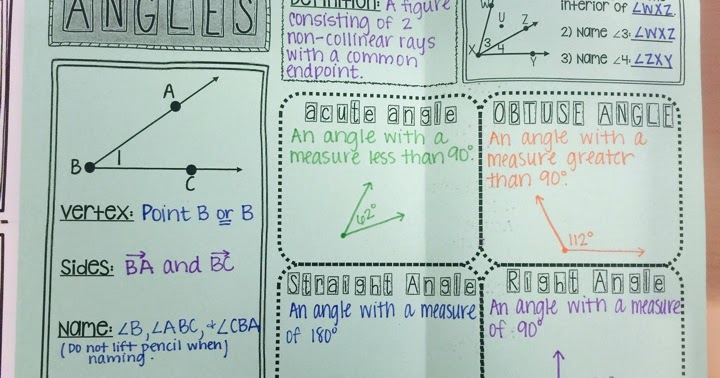 ANGLES
Definition: A figure
consisting of 2
non-collinear rays
with a common
endpoint.
interior of ∠WXZ.
2) Name ∠3: ∠WXZ
3) Name ∠4: ∠ZXY
W
U
Z
X
3
4
Y
A
B
1
C
Vertex: Point B or B
Sides: BA and BC
Name: ∠B, ∠ABC, + ∠CBA
(Do not lift pencil when
naming.)
acute angle
An angle with a
measure less than 90°.
62°
OBTUSE ANGLE
An angle with a
measure greater
than 90°.
112°
Straight Angle
An angle with a measure
of 180°
Right Angle
An angle with a measure
of 90°